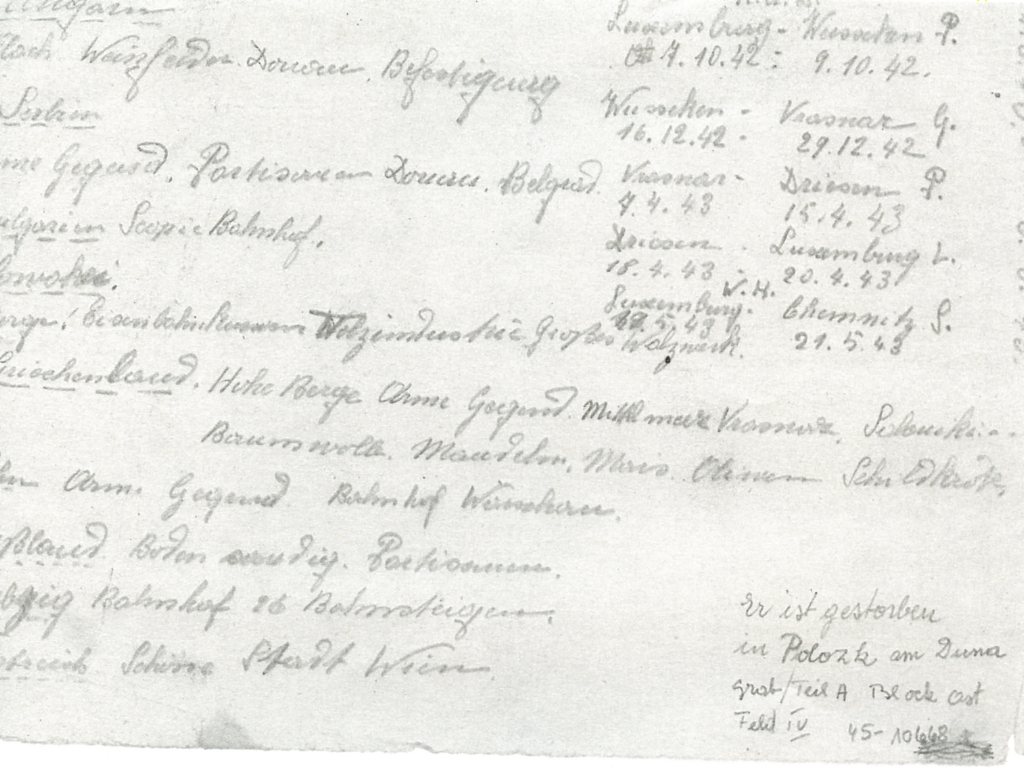 Ungarn
flach. Weizfelder. Donau. Befestigung
Serbien
Arme Gegend. Partisanen Donau. Belgrad.
Bulgarien Scopie Bahnhof.
Slowakei.
Berge! Eisenbahnkurven Holzindustrie Großes Walzwerk.
Griechenland. Hohe Berge Arme Gegend. Mittlmeer Vrasnar. Saloniki
Baumwolle. Mandeln. Mais. Oliven Schildkröte.
Polen Arme Gegend Bahnhof Warschau.
Rußland. Boden sandig. Partisanen.
Leipzig Bahnhof 26 Bahnsteigen.
Östreich Schöne Stadt Wien
Luxemburg - Wusseken P.
7.10.42 : 9.10.42.
Wusseken - Vrasnar G.
16.12.42 - 29.12.42
Vrasnar - Driesen P.
7.4.43 15.4.43
Driesen - Luxemburg L.
18.4.43 - 20.4.43
W.H.
Luxemburg. Chemnitz S.
19.5.43 21.5.43
Er ist gestorben
in Polozk am Duna
Grab/Teil A Block ost
Feld IV 45-10668